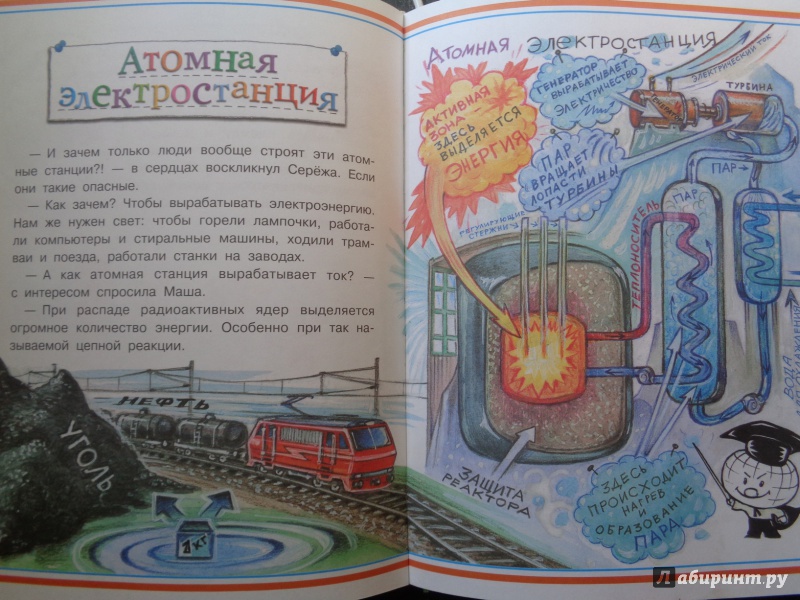 Атомная
электростанция
— И зачем только люди вообще строят эти атом-
ные станции?! — в сердцах воскликнул Серёжа. Если
они такие опасные.
— Как зачем? Чтобы вырабатывать электроэнергию.
Нам же нужен свет: чтобы горели лампочки, работа-
ли компьютеры и стиральные машины, ходили трам-
ваи и поезда, работали станки на заводах.
— А как атомная станция вырабатывает ток? —
с интересом спросила Маша.
— При распаде радиоактивных ядер выделяется
огромное количество энергии. Особенно при так на-
зываемой цепной реакции.
НЕФТЬ
УГОЛЬ
1 кг
АТОМНАЯ ЭЛЕКТРОСТАНЦИЯ
ЭЛЕКТРИЧЕСКИЙ ТОК
ТУРБИНА
ГЕНЕРАТОР
ВЫРАБАТЫВАЕТ
ЭЛЕКТРИЧЕСТВО
АКТИВНАЯ
ЗОНА
ЗДЕСЬ
ВЫДЕЛЯЕТСЯ
ЭНЕРГИЯ
ПАР
ВРАЩАЕТ
ЛОПАСТИ
ТУРБИНЫ
ПАР
ПАР
РЕГУЛИРУЮЩИЕ
СТЕРЖНИ
ТЕПЛОНОСИТЕЛЬ
ВОДА
ЗАЩИТА
РЕАКТОРА
ЗДЕСЬ
ПРОИСХОДИТ
НАГРЕВ
И
ОБРАЗОВАНИЕ
ПАРА
Лабиринт.ру